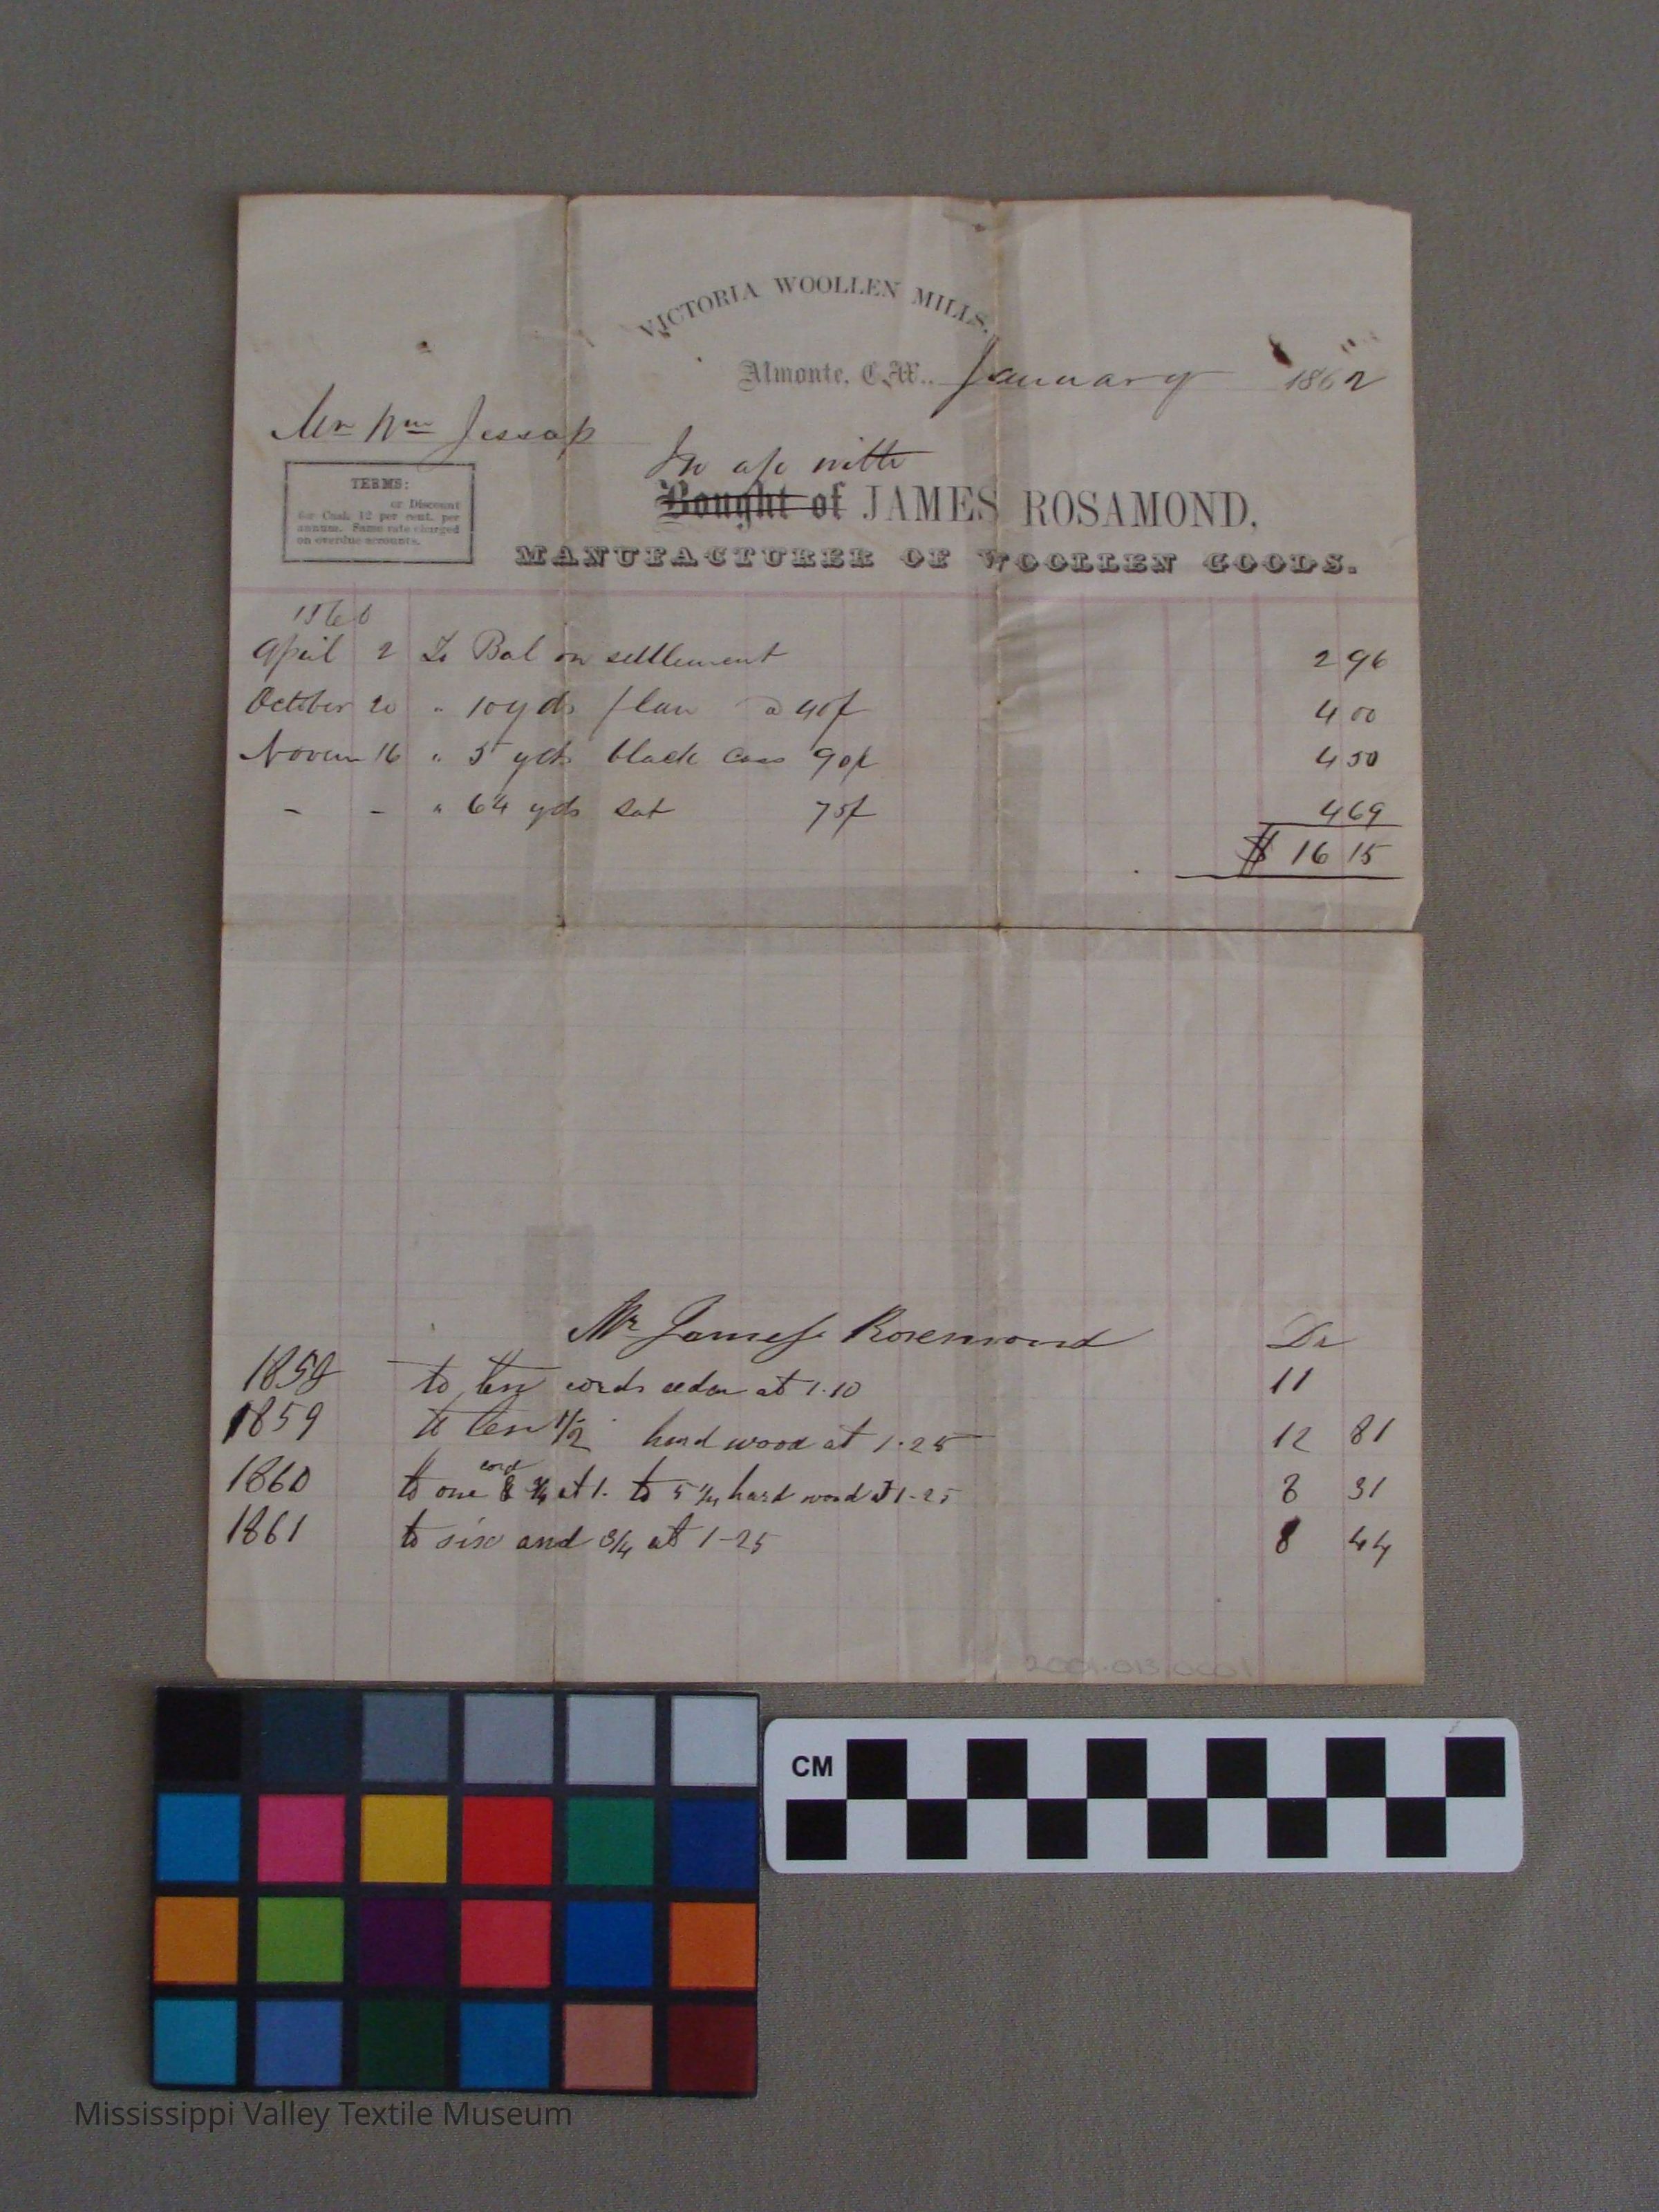 VICTORIA WOOLLEN MILLS,
Almonte, C.W., January 1862
Mr Wm Jessop
In a/c with
Bought of JAMES ROSAMOND,
MANUFACTURER OF WOOLLEN GOODS.
TERMS:
or Discount
for Cash 12 per cent. per
annum. Same rate charged
on overdue accounts.
1860
April 2 To Bal on settlement 2 96
October 20 " 10 yds flan @ 40¢ 4 00
Novem 16 " 5 yds black cass 90¢ 4 50
- - " 6 1/4 yds sat 75¢ 4 69
$ 16 15
Mr James Rosemond Dr
1858 to ten cords cedar at 1.10 11
1859 to ten 1/2 hard wood at 1.25 12 81
1860 to one cord 3/4 at 1. to 5 1/4 hard wood at 1-25 8 31
1861 to six and 3/4 at 1-25 8 44
2001.013.0001
CM
Mississippi Valley Textile Museum